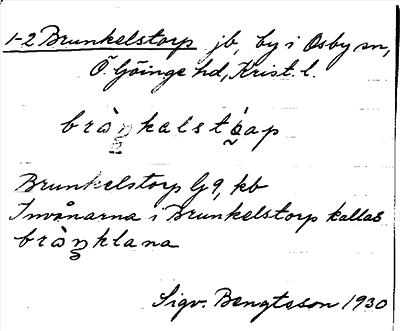 1-2 Brunkelstorp jb, by i Osby sn,
Ö. Göinge hd, Krist. l.
bràŋkəlstó̱ap
Brunkelstorp G 9, kb
Invånarna i Brunkelstorp kallas
bràŋklana
Sigv. Bengtsson 1930